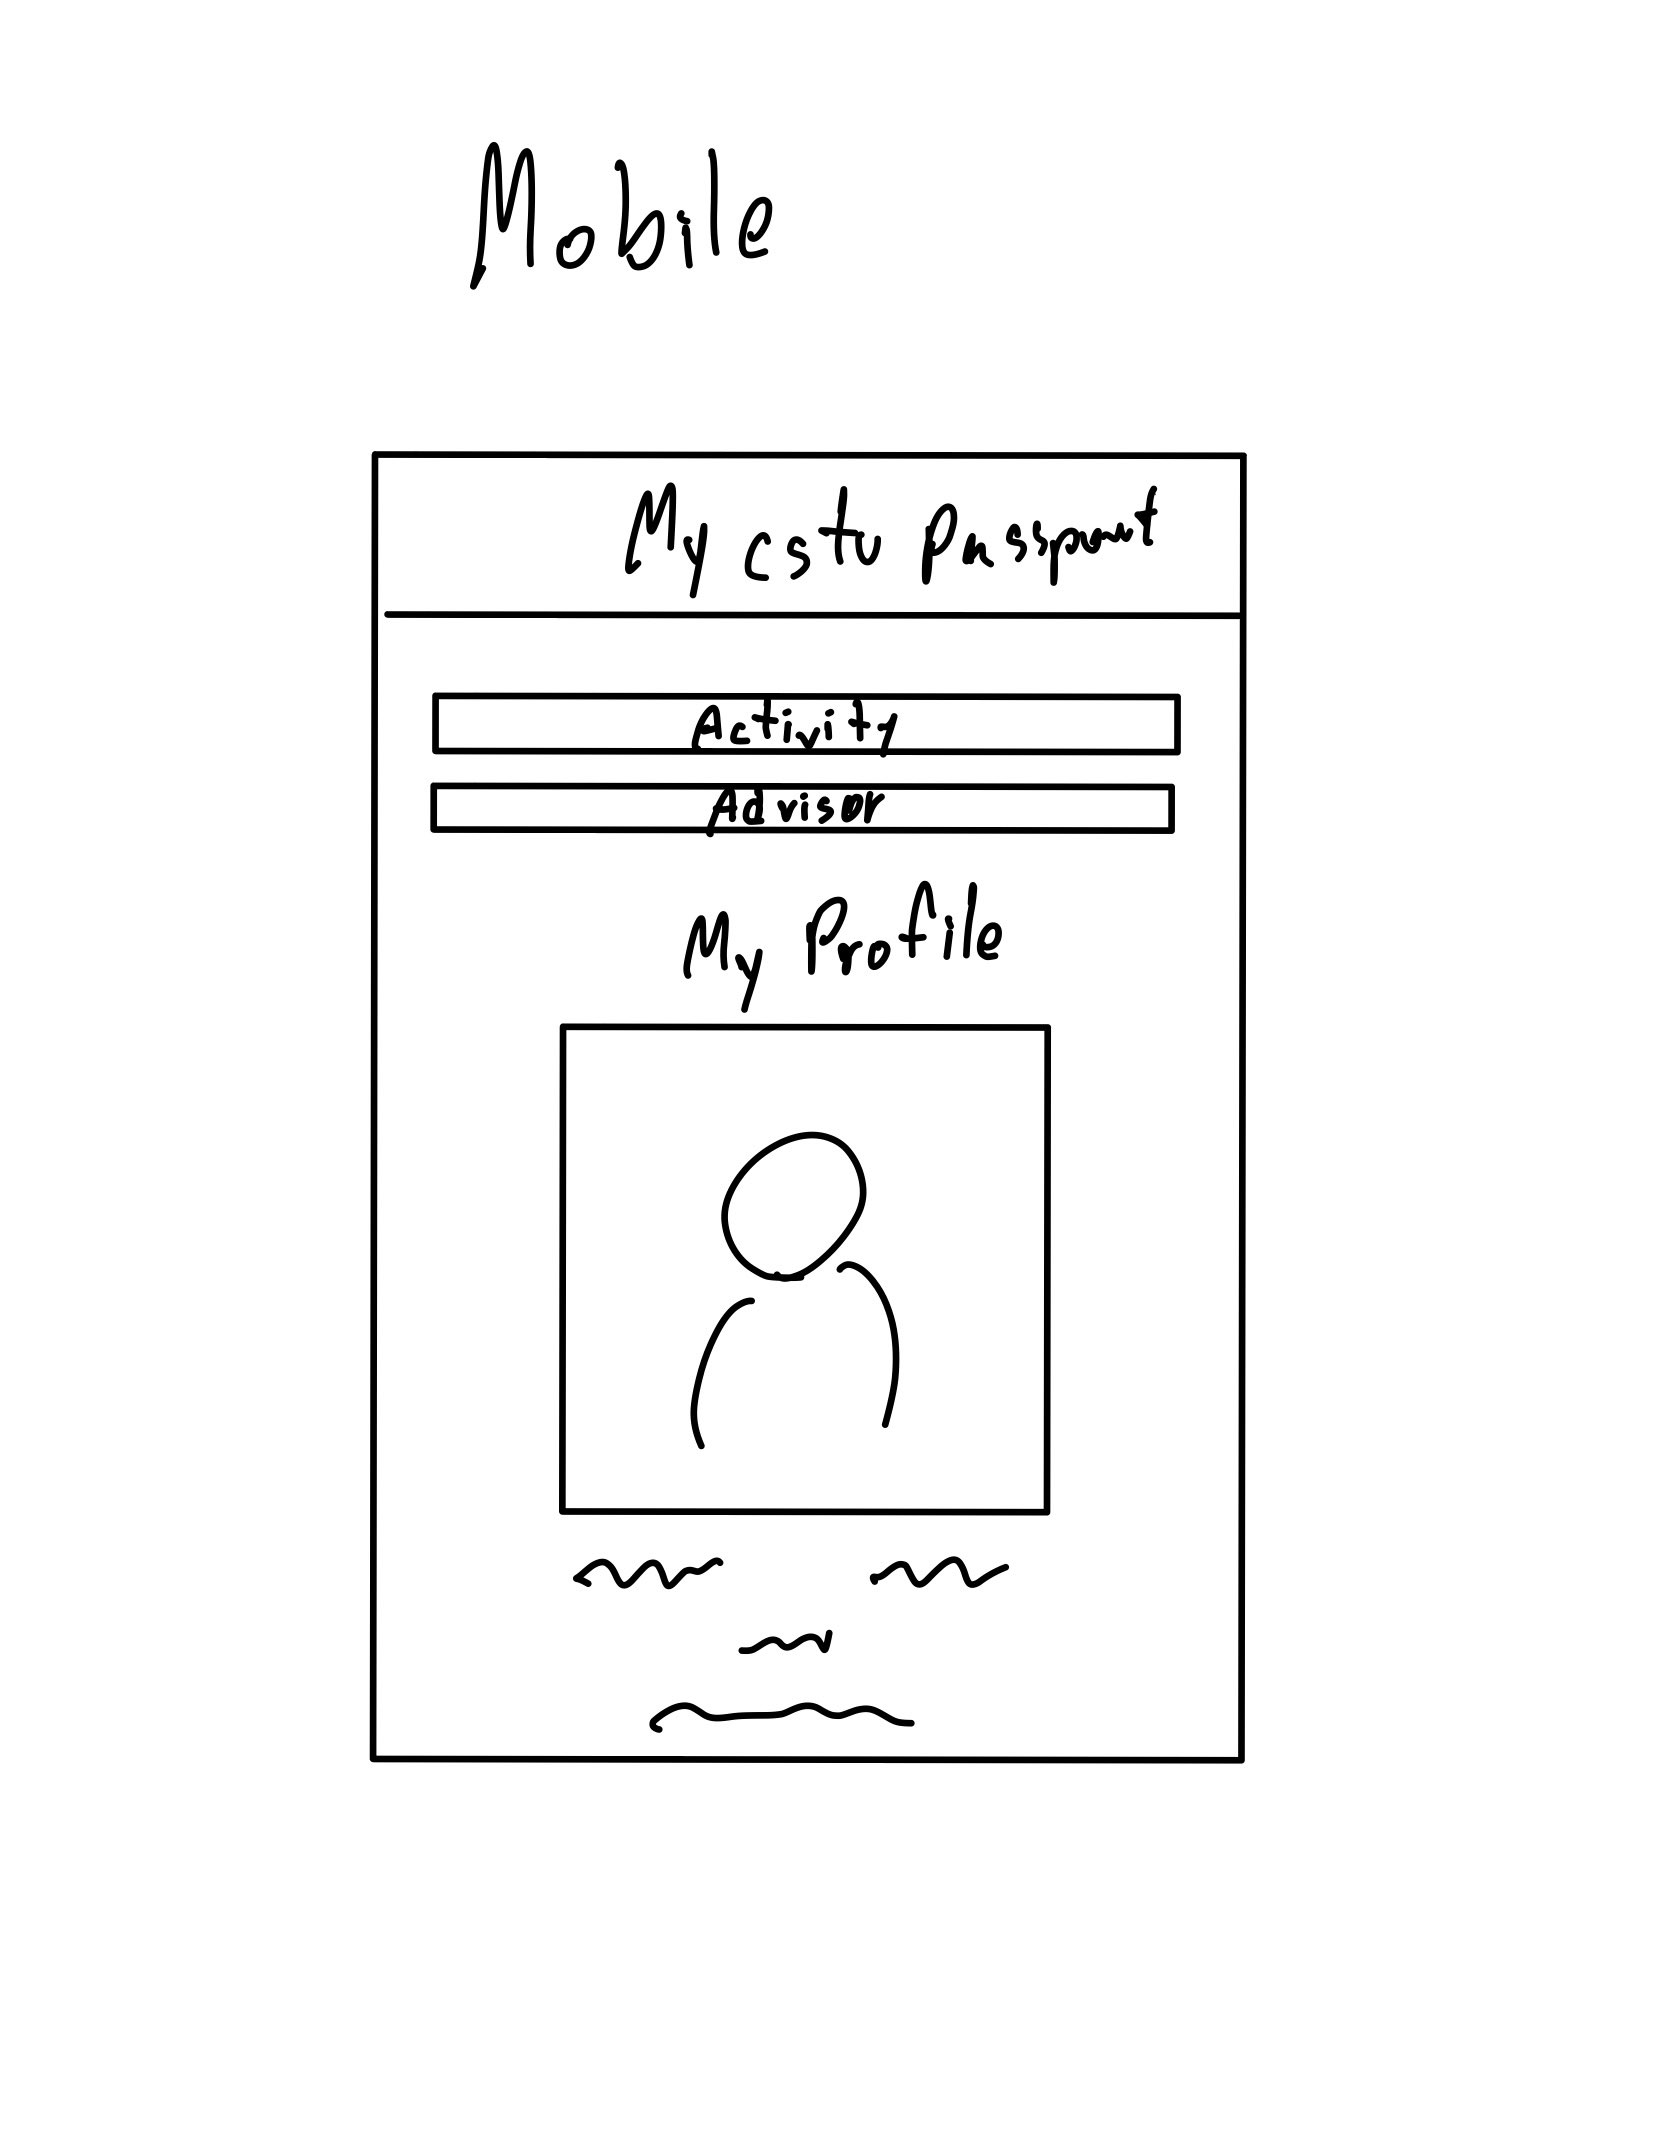 Mobile
My cstu Passport
Activity
Advisor
My Profile